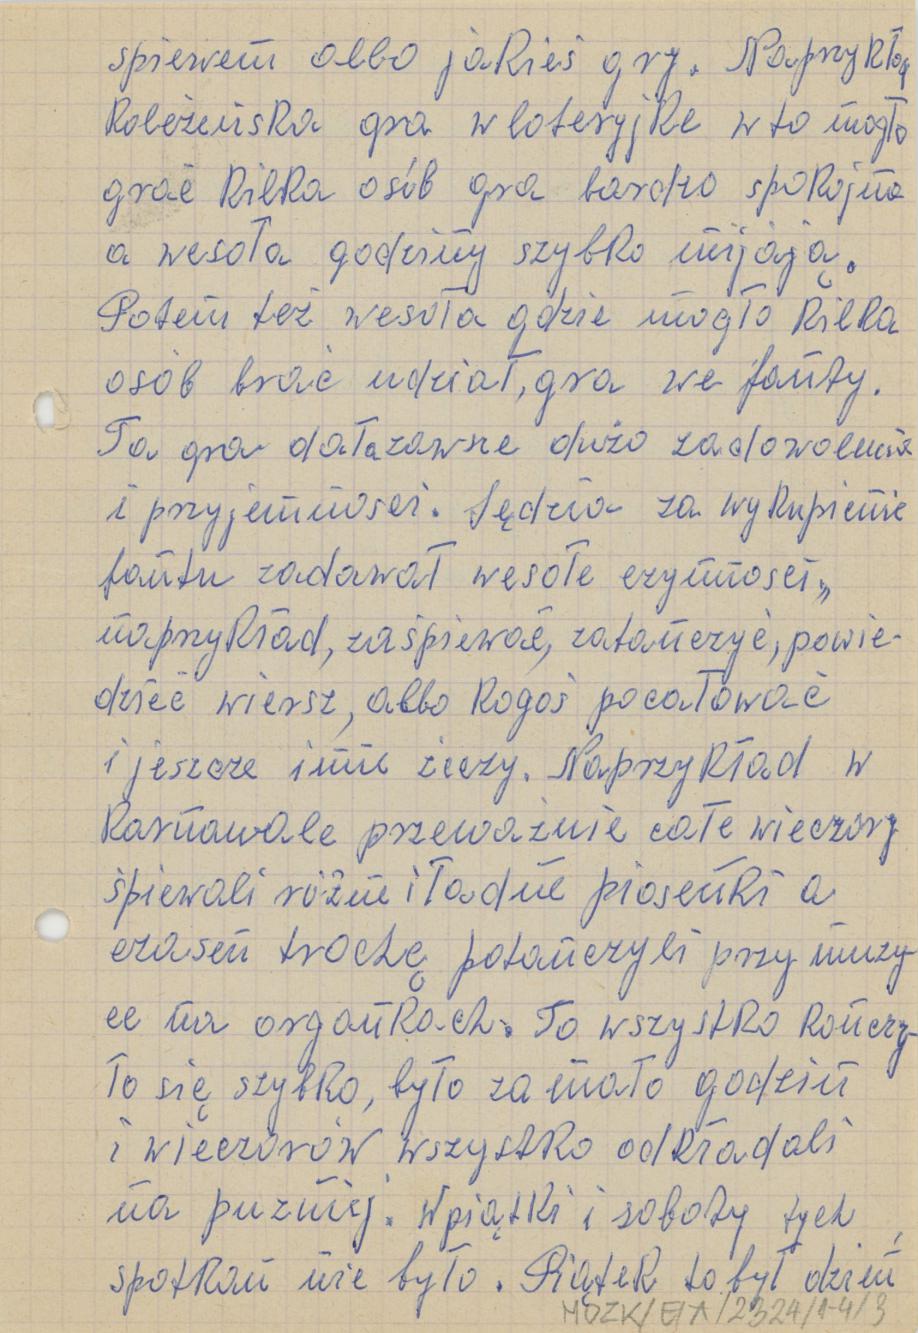 śpiewem albo jakieś gry. Naprzykład
koleżeńska gra w loteryjke w to mogło
grać kilka osób gra bardzo spokojna
a wesoła godziny szybko mijają.
Potem też wesoła gdzie mogło kilka
osób brać udział, gra we fanty.
Ta gra dała zawsze dużo zadowolenia
i przyjemności. Sędzia za wykupienie
fantu zadawał wesołe czynności,,
naprzykład, zaśpiewać, zatańczyć, powie-
dzieć wiersz, albo kogoś pocałować
i jeszcze inne żeczy. Naprzykład w
karnawale przeważnie całe wieczory
śpiewali różne i ładne piosenki a
czasem trochę potańczyli przy muzy-
ce na organkach. To wszystko kończy-
ło się szybko, było za mało godzin
i wieczorów wszystko odkładali
na puzniej. W piątki i soboty tych
spotkań nie było. Piątek to był dzień
MOZK/E/A/2324/1-4/3